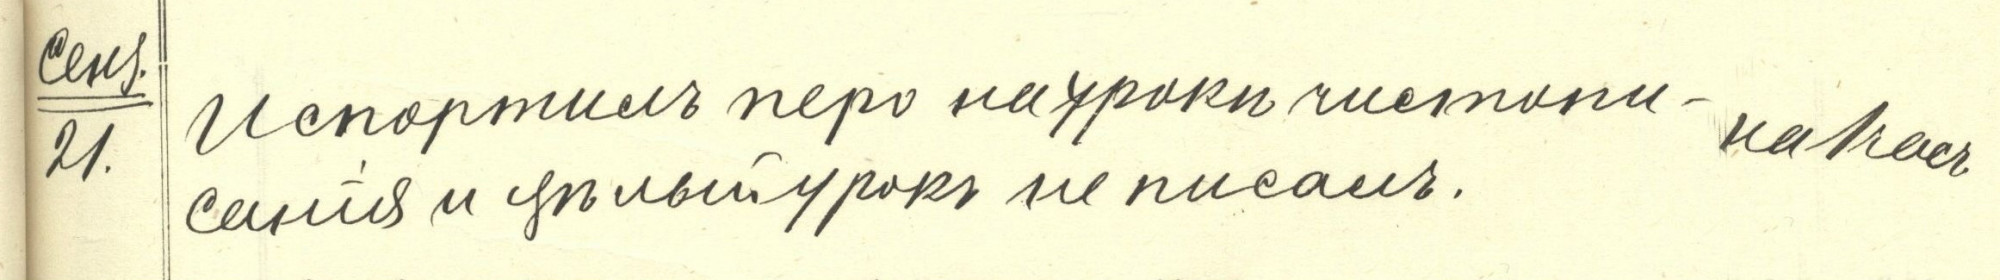 Сент.
21.
Испортилъ перо на урокѣ чистопи-
санія и цѣлый урокъ не писалъ.
на 1 часъ